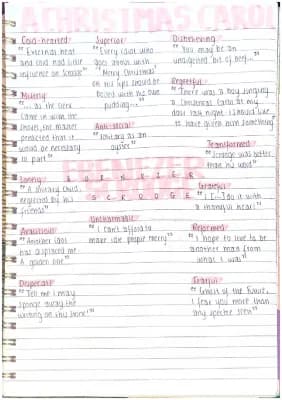 A CHRISTMAS CAROL
Cold-hearted
" External heat
and cold had little
influence on Scrooge"
Superior
" Every idiot who
goes about with
'Merry Christmas'
on his lips should be
boiled with his own
pudding..."
Disbelieving
" You may be an
undigested bit of beef..."
Regretful
" There was a boy singing
a Christmas Carol at my
door last night. I should like
to have given him something"
Miserly
" ... as the clerk
came in with the
shovel, the master
predicted that it
would be necessary
to part"
Anti-social
" solitary as an
oyster"
Transformed
" Scrooge was better
than his word"
EBENEZER
SCROOGE
Lonely
" A solitary child,
neglected by his
friends"
Grateful
it with
a thankful heart"
Uncharitable
" I can't afford to
make idle people merry"
Ambitious
" Another idol
has displaced me...
A golden one"
Reformed
" I hope to live to be
another man from
what I was"
Desperate
" Tell me I may
sponge away the
writing on this stone!"
Fearful
" Ghost of the Future,
I fear you more than
any spectre seen"